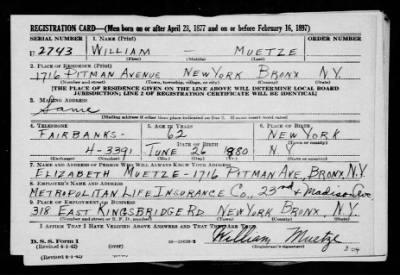 REGISTRATION CARD—(Men born on or after April 28, 1877 and on or before February 16, 1897)
SERIAL NUMBER 1. NAME (Print) ORDER NUMBER
U 2743 WILLIAM — MUETZE
(First) (Middle) (Last)
2. PLACE OF RESIDENCE (Print)
1716 PITMAN AVENUE NEW YORK BRONX N.Y.
(Number and street) (Town, township, village, or city) (County) (State)
[THE PLACE OF RESIDENCE GIVEN ON THE LINE ABOVE WILL DETERMINE LOCAL BOARD
JURISDICTION; LINE 2 OF REGISTRATION CERTIFICATE WILL BE IDENTICAL]
3. MAILING ADDRESS
Same
4. TELEPHONE 5. AGE IN YEARS 6. PLACE OF BIRTH
FAIRBANKS- 62 NEW YORK
DATE OF BIRTH (Town or county)
4-3391 JUNE 26 1880 N.Y.
(Exchange) (Number) (Mo.) (Day) (Yr.) (State or country)
7. NAME AND ADDRESS OF PERSON WHO WILL ALWAYS KNOW YOUR ADDRESS
ELIZABETH MUETZE-1716 PITMAN AVE, BRONX, N.Y.
8. EMPLOYER'S NAME AND ADDRESS
METROPOLITAN LIFE INSURANCE CO., 23rd & Madison Ave
9. PLACE OF EMPLOYMENT OR BUSINESS
318 EAST KINGSBRIDGE RD NEW YORK BRONX N.Y.
(Number and street or R. F. D. number) (Town) (County) (State)
I AFFIRM THAT I HAVE VERIFIED ABOVE ANSWERS AND THAT THEY ARE TRUE.
D. S. S. Form 1 William Muetze
(Revised 4-1-42) (Registrant's signature)